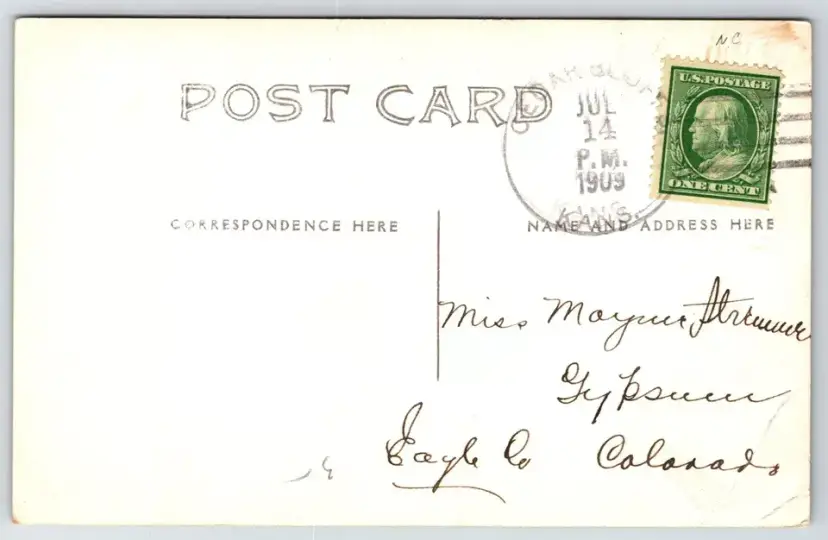 NC
POST CARD
U.S. POSTAGE
ONE CENT
JUL
14
P.M.
1909
KANS.
CORRESPONDENCE HERE
NAME AND ADDRESS HERE
Miss Mayme
Gypsum
Eagle Co Colorado